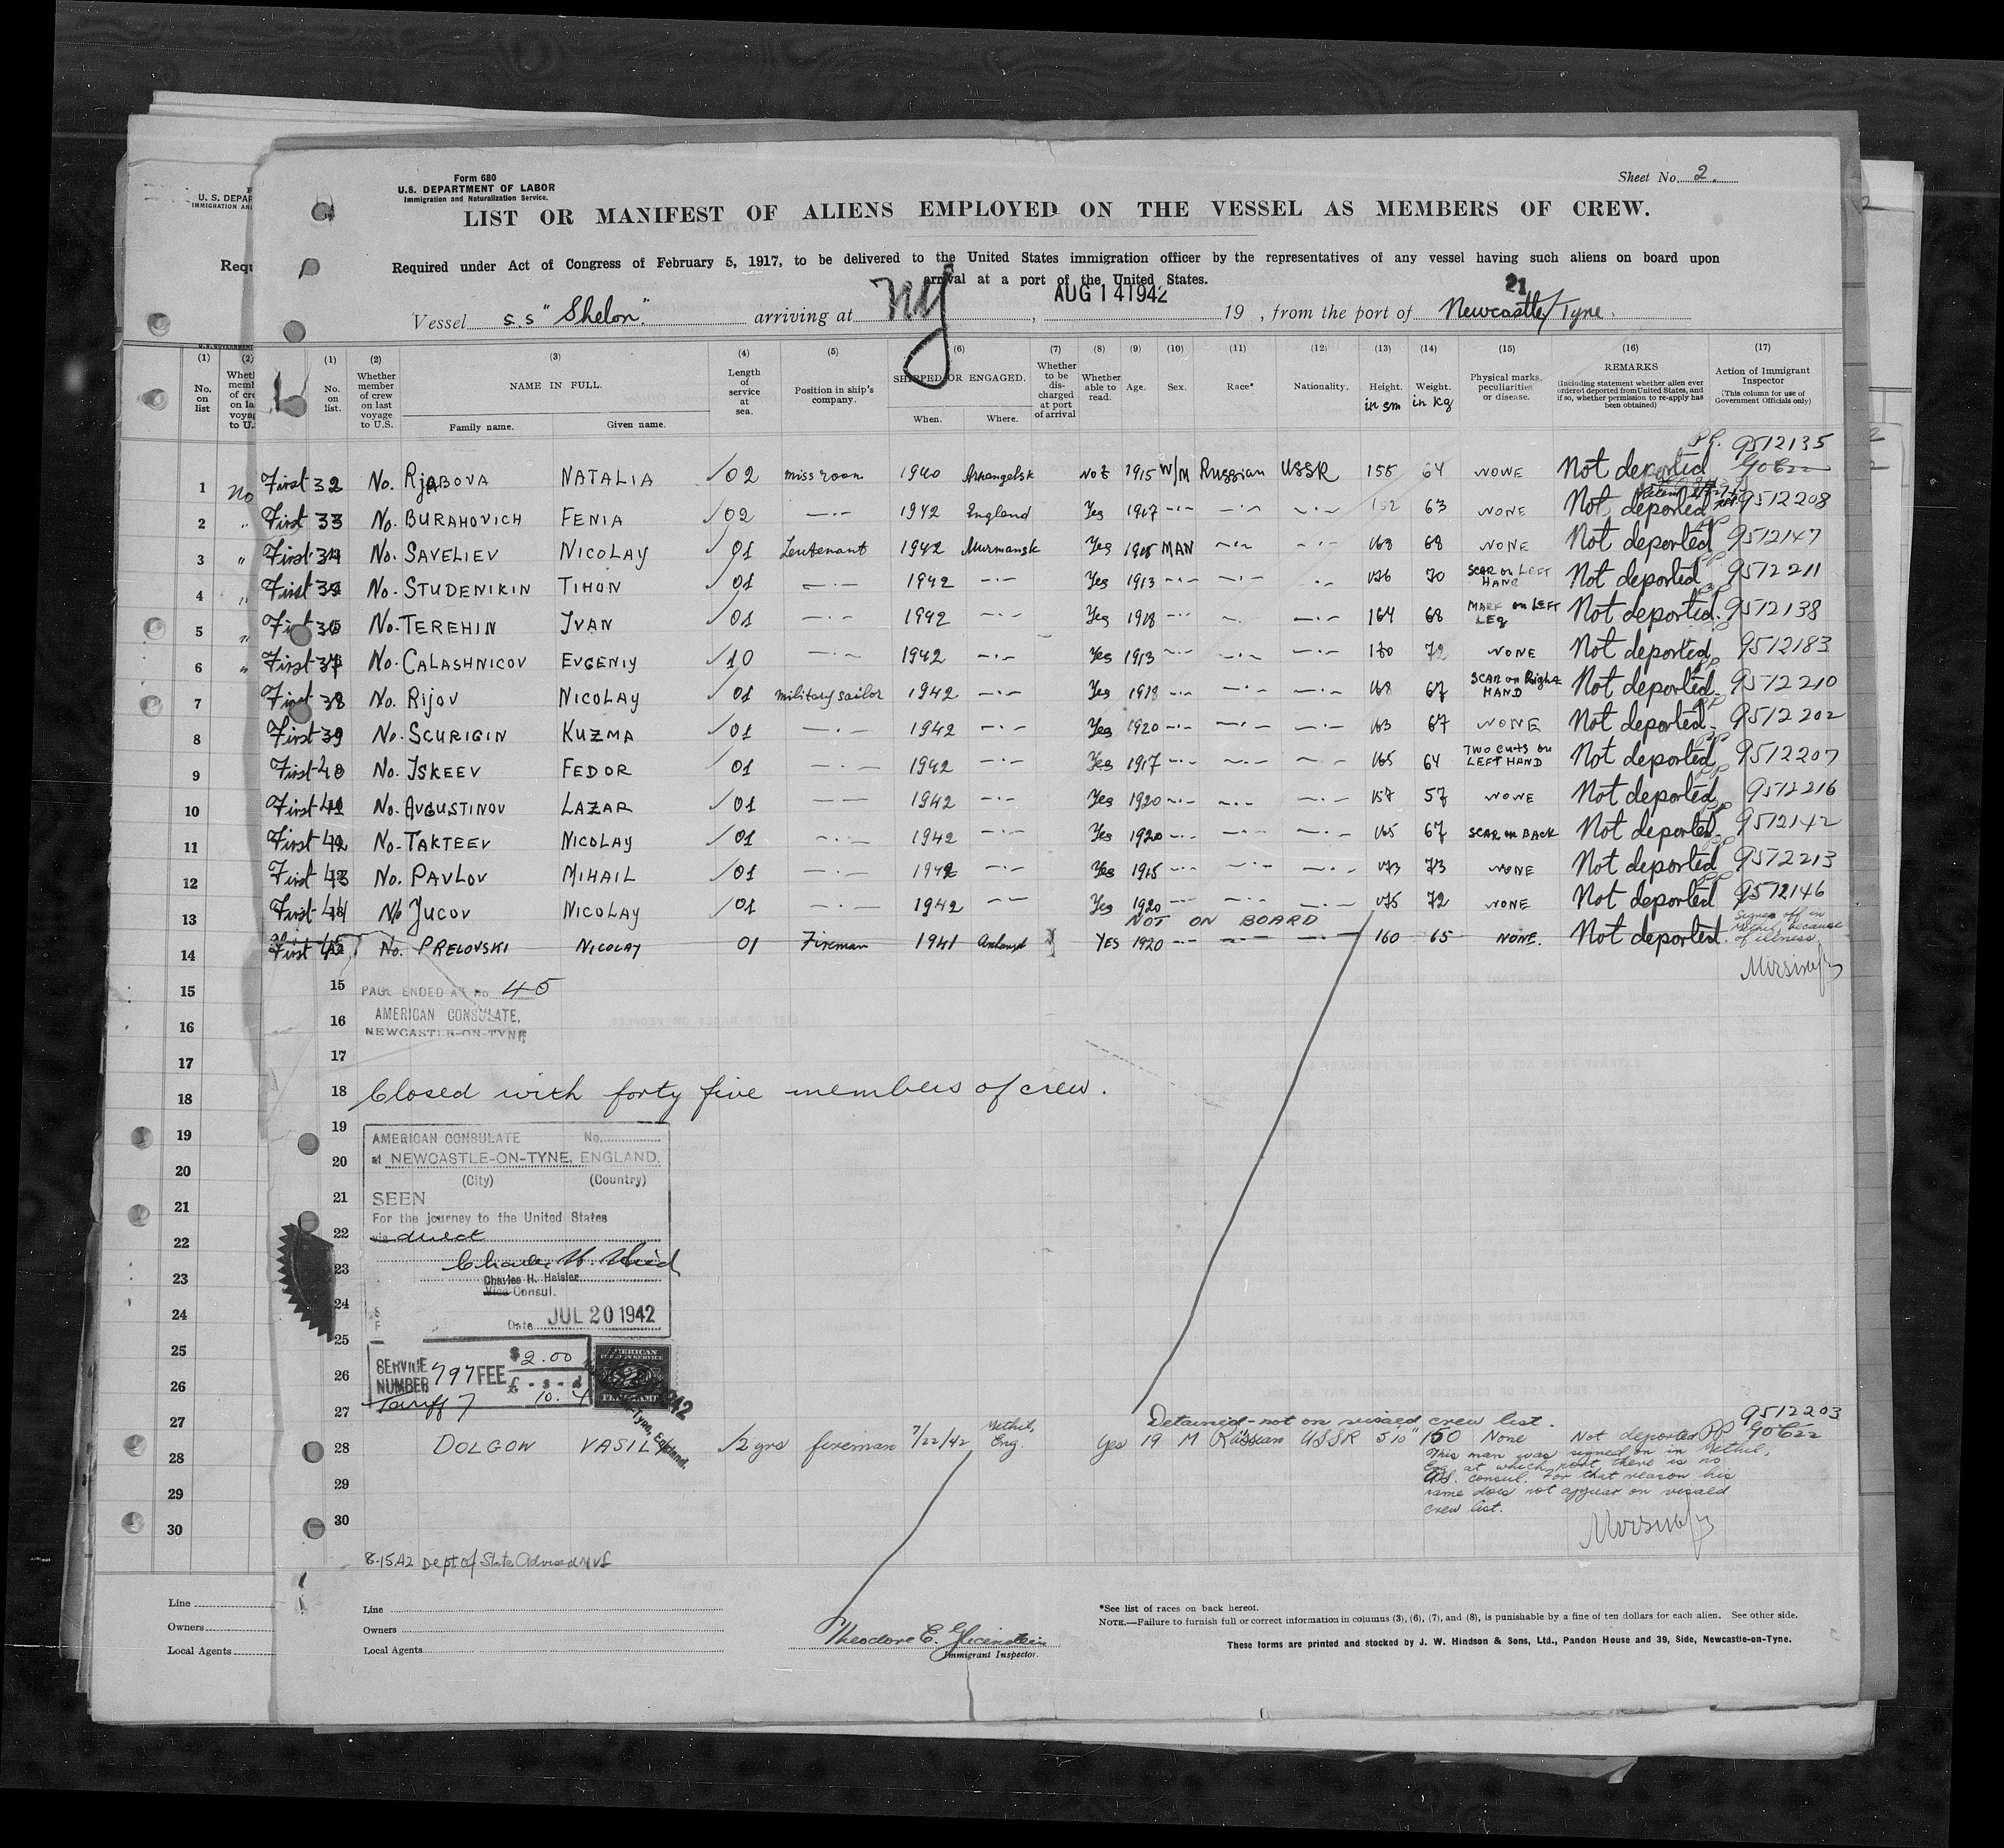 Form 680
U.S. DEPARTMENT OF LABOR
Immigration and Naturalization Service.
Sheet No. 2.
LIST OR MANIFEST OF ALIENS EMPLOYED ON THE VESSEL AS MEMBERS OF CREW.
Required under Act of Congress of February 5, 1917, to be delivered to the United States immigration officer by the representatives of any vessel having such aliens on board upon
arrival at a port of the United States.
Vessel s.s "Shelon". arriving at NY, AUG 14 1942 19 , from the port of Newcastle/Tyne.
21
(1) (2) (3) (4) (5) (6) (7) (8) (9) (10) (11) (12) (13) (14) (15) (16) (17)
No. on list.
Whether member of crew on last voyage to U.S.
NAME IN FULL.
Family name. Given name.
Length of service at sea.
Position in ship's company.
SHIPPED OR ENGAGED.
When. Where.
Whether to be discharged at port of arrival
Whether able to read.
Age.
Sex.
Race*
Nationality.
Height. in sm
Weight. in kg
Physical marks, peculiarities or disease.
REMARKS
(Including statement whether alien ever ordered deported from United States, and if so, whether permission to re-apply has been obtained)
Action of Immigrant Inspector
(This column for use of Government Officials only)
1 First 32 No. RjABOVA NATALIA 02 miss room 1940 Arkangelsk 1915 W/M Russian USSR 155 64 NONE Not deported 9512135
2 First 33 No. BURAHOVICH FENIA 02 —·— 1942 England Yes 1917 —·— —·— —·— 63 NONE Not deported 9512208
3 First 34 No. SAVELIEV NICOLAY 01 Leutenant 1942 Murmansk Yes MAN —·— —·— 168 68 NONE Not deported 9512147
4 First 35 No. STUDENIKIN TIHON 01 —·— 1942 —·— Yes 1913 —·— —·— —·— 176 70 SCAR on LEFT HAND Not deported 9512211
5 First 36 No. TEREHIN IVAN 01 —·— 1942 —·— Yes 1918 —·— —·— —·— 164 68 MARK on LEFT LEg Not deported. 9512138
6 First 37 No. CALASHNICOV EVGENIY 10 —·— 1942 —·— Yes 1913 —·— —·— —·— 170 72 NONE Not deported 9512183
7 First 38 No. Rijov NICOLAY 01 military sailor 1942 —·— Yes 1918 —·— —·— —·— 168 67 SCAR on Right HAND Not deported. 9512210
8 First 39 No. SCURIGIN KUZMA 01 —·— 1942 —·— Yes 1920 —·— —·— —·— 163 67 NONE Not deported. 9512202
9 First 40 No. ISKEEV FEDOR 01 —·— 1942 —·— Yes 1917 —·— —·— —·— 165 64 TWO CUTS on LEFT HAND Not deported 9512207
10 First 41 No. AVGUSTINOV LAZAR 01 —·— 1942 —·— Yes 1920 —·— —·— —·— 157 57 NONE Not deported 9512216
11 First 42 No. TAKTEEV NICOLAY 01 —·— 1942 —·— Yes 1920 —·— —·— —·— 165 67 SCAR on BACK Not deported. 9512142
12 First 43 No. PAVLOV MIHAIL 01 —·— 1942 —·— Yes 1915 —·— —·— —·— 173 73 NONE Not deported 9512213
13 First 44 No JUCOV NICOLAY 01 —·— 1942 —·— Yes 1920 —·— —·— —·— 175 72 NONE Not deported 9512146
NOT ON BOARD
14 First 45 No. PRELOVSKI NICOLAY 01 Fireman 1941 YES 1920 —·— —·— —·— 160 65 NONE. Not deported. Signed off in Methil, because of illness
15 PAGE ENDED AT No 45
16 AMERICAN CONSULATE,
NEWCASTLE-ON-TYNE
17
18 Closed with forty five members of crew.
19 AMERICAN CONSULATE No.
20 at NEWCASTLE-ON-TYNE, ENGLAND.
(City) (Country)
21 SEEN
For the journey to the United States
22 via direct
23
Charles H. Heisler
Vice Consul.
24
Date JUL 20 1942
25
26 SERVICE NUMBER 797 FEE $2.00
£ - s - d
Tariff 7 10.
AMERICAN
FEE STAMP
27 Detained - not on visaed crew list. 9512203
28 DOLGOW VASILY 2 yrs fireman 7/22/42 Methil, Eng. Yes 19 M Russian USSR 5'10" 150 None Not deported PP
This man was signed on in Methil,
Eng. at which port there is no
U.S. consul. For that reason his
name does not appear on visaed
crew list.
29
30
8-15-42 Dept of State Advised
Line
Owners
Local Agents
Theodore E.
Immigrant Inspector.
*See list of races on back hereof.
NOTE.—Failure to furnish full or correct information in columns (3), (6), (7), and (8), is punishable by a fine of ten dollars for each alien. See other side.
These forms are printed and stocked by J. W. Hindson & Sons, Ltd., Pandon House and 39, Side, Newcastle-on-Tyne.